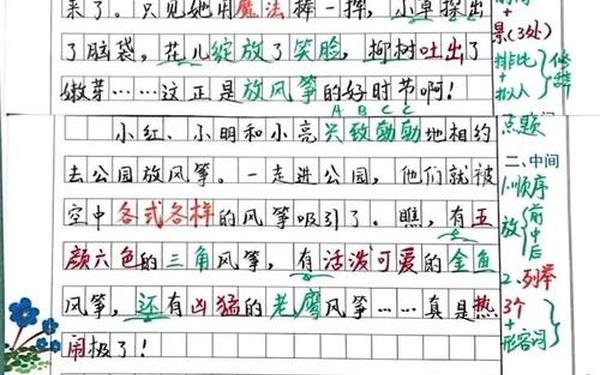 来了。只见她用魔法棒一挥，小草探出
了脑袋，花儿绽放了笑脸，柳树吐出了
嫩芽……这正是放风筝的好时节啊！
A B C C
小红、小明和小亮兴致勃勃地相约
去公园放风筝。一走进公园，他们就被
空中各式各样的风筝吸引了。瞧，有五
颜六色的三角风筝，有活泼可爱的金鱼
风筝，还有凶猛的老鹰风筝……真是热
闹极了！
+
景(3处)
排比
+
拟人
修辞
点题
二、中间
1.顺序
放
前
中
后
2.列举
3个
+
形容词